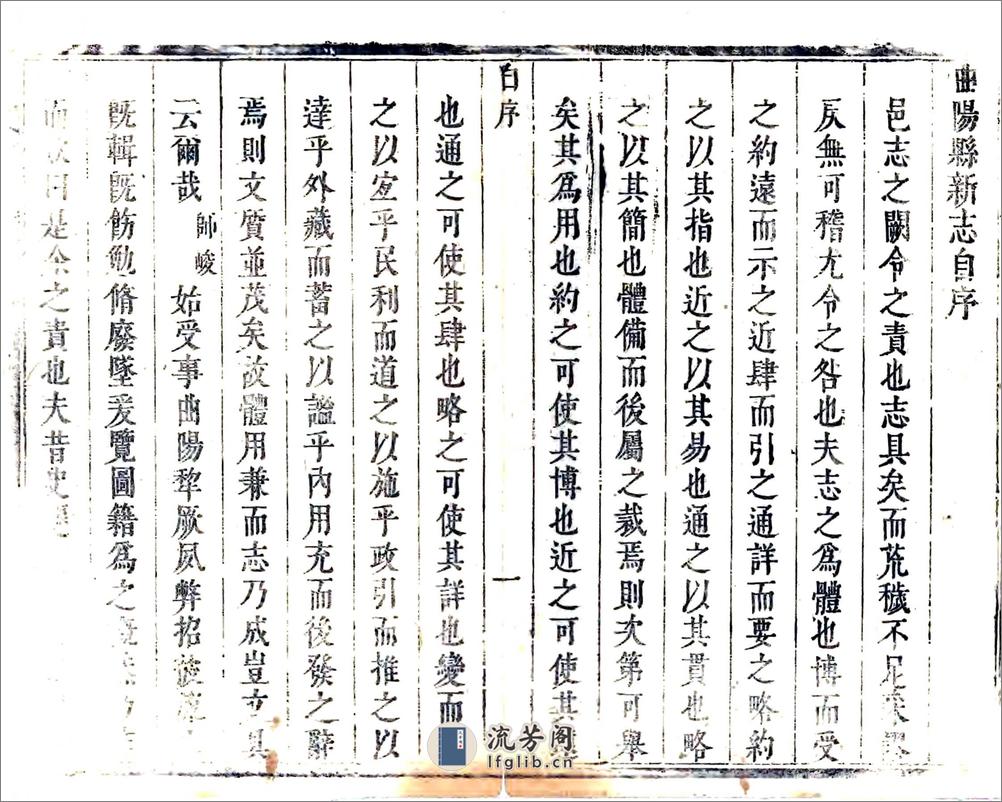 曲陽縣新志自序
邑志之闕令之責也志具矣而荒穢不足
反無可稽尤令之咎也夫志之為體也博而受
之約遠而示之近肆而引之通詳而要之略約
之以其指也近之以其易也通之以其貫也略
之以其簡也體備而後屬之裁焉則次第可舉
矣其為用也約之可使其博也近之可使其
自序
一
也通之可使其肆也略之可使其詳也變而
之以宜乎民利而道之以施乎政引而推之以
達乎外藏而蓄之以謐乎內用充而後發之辭
焉則文質並茂矣故體用兼而志乃成豈文具
云爾哉師峻始受事曲陽犂厥夙弊招
既輯既飭勉脩廢墜爰覽圖籍為之
而 曰是余之責也夫昔史
流芳阁
lfglib.cn